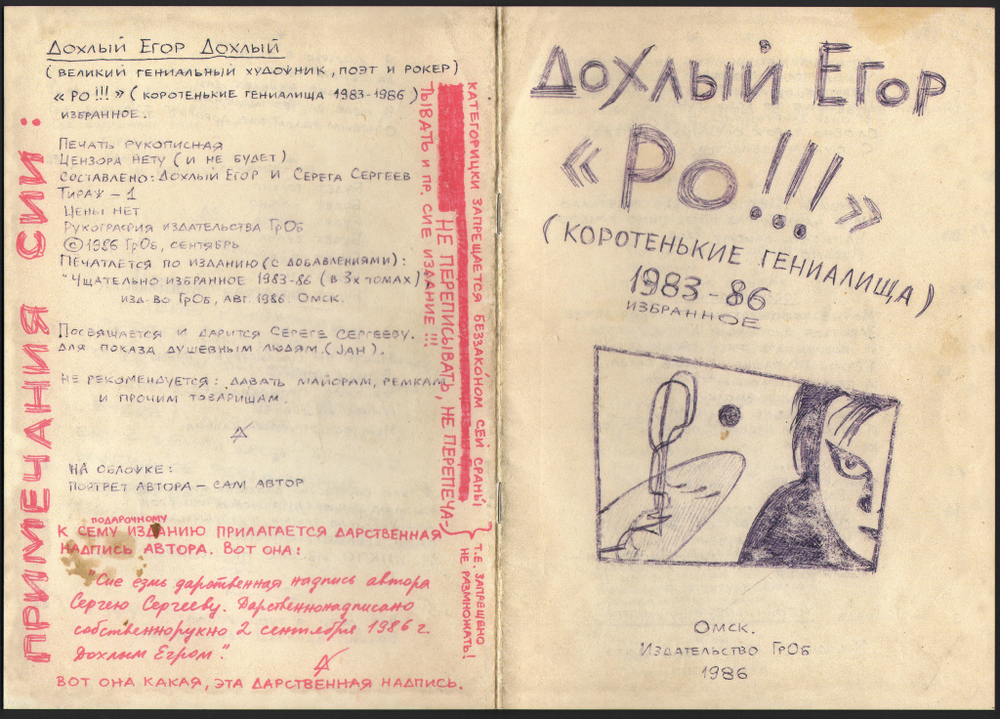 ДОХЛЫЙ ЕГОР ДОХЛЫЙ
(ВЕЛИКИЙ ГЕНИАЛЬНЫЙ ХУДОЖНИК, ПОЭТ И РОКЕР)
«РО !!!» (КОРОТЕНЬКИЕ ГЕНИАЛИЩА 1983-1986)
ИЗБРАННОЕ.
ПЕЧАТЬ РУКОПИСНАЯ
ЦЕНЗОРА НЕТУ (И НЕ БУДЕТ)
СОСТАВЛЕНО: ДОХЛЫЙ ЕГОР И СЕРЕГА СЕРГЕЕВ
ТИРАЖ – 1
ЦЕНЫ НЕТ
РУКОГРАФИЯ ИЗДАТЕЛЬСТВА ГРОБ
© 1986 ГрОб, СЕНТЯБРЬ
ПЕЧАТАЕТСЯ ПО ИЗДАНИЮ (С ДОБАВЛЕНИЯМИ):
"ЧЩАТЕЛЬНО ИЗБРАННОЕ 1983-86 (В 3х ТОМАХ)
ИЗД-ВО ГрОб, АВГ. 1986. ОМСК.
ПОСВЯЩАЕТСЯ И ДАРИТСЯ СЕРЕГЕ СЕРГЕЕВУ.
ДЛЯ ПОКАЗА ДУШЕВНЫМ ЛЮДЯМ. (JАН).
НЕ РЕКОМЕНДУЕТСЯ: ДАВАТЬ МАЙОРАМ, РЕМКАМ
И ПРОЧИМ ТОВАРИЩАМ.
НА ОБЛОЖКЕ:
ПОРТРЕТ АВТОРА – САМ АВТОР
ПОДАРОЧНОМУ
К СЕМУ ИЗДАНИЮ ПРИЛАГАЕТСЯ ДАРСТВЕННАЯ
НАДПИСЬ АВТОРА. ВОТ ОНА:
"Сие езмь дарственная надпись автора
Сергею Сергееву. Дарственнонадписано
собственнорукно 2 сентября 1986 г.
Дохлым Егром".
ВОТ ОНА КАКАЯ, ЭТА ДАРСТВЕННАЯ НАДПИСЬ.
ПРИМЕЧАНИЯ СИИ:
КАТЕГОРИЦКИ ЗАПРЕЩАЕТСЯ БЕЗЗАКО́НОМ СЕЙ СРАНЫ
НЕ ПЕРЕПИСЫВАТЬ, НЕ ПЕРЕПЕЧА-
ТЫВАТЬ И ПР. СИЕ ИЗДАНИЕ !!!
Т.Е. ЗАПРЕЩЕНО
НЕ РАЗМНОЖАТЬ!
ДОХЛЫЙ ЕГОР
«РО!!!»
(КОРОТЕНЬКИЕ ГЕНИАЛИЩА)
1983-86
ИЗБРАННОЕ
ОМСК.
ИЗДАТЕЛЬСТВО ГрОб
1986